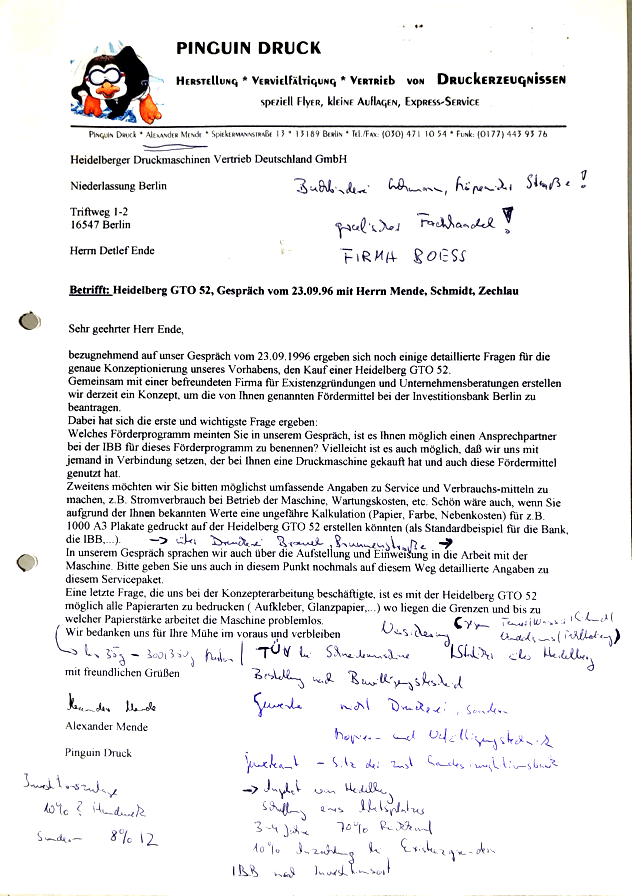 PINGUIN DRUCK
HERSTELLUNG * VERVIELFÄLTIGUNG * VERTRIEB VON DRUCKERZEUGNISSEN
SPEZIELL FLYER, KLEINE AUFLAGEN, EXPRESS-SERVICE
PINGUIN DRUCK * ALEXANDER MENDE * SPIEKERMANNSTRAßE 13 * 13189 BERLIN * TEL/FAX: (030) 471 10 54 * FUNK: (0177) 443 93 76
Heidelberger Druckmaschinen Vertrieb Deutschland GmbH
Niederlassung Berlin
Buchbinderei Straße!
Triftweg 1-2
16547 Berlin
Fachhandel!
Herrn Detlef Ende
FIRMA BOESS
Betrifft: Heidelberg GTO 52, Gespräch vom 23.09.96 mit Herrn Mende, Schmidt, Zechlau
Sehr geehrter Herr Ende,
bezugnehmend auf unser Gespräch vom 23.09.1996 ergeben sich noch einige detaillierte Fragen für die
genaue Konzeptionierung unseres Vorhabens, den Kauf einer Heidelberg GTO 52.
Gemeinsam mit einer befreundeten Firma für Existenzgründungen und Unternehmensberatungen erstellen
wir derzeit ein Konzept, um die von Ihnen genannten Fördermittel bei der Investitionsbank Berlin zu
beantragen.
Dabei hat sich die erste und wichtigste Frage ergeben:
Welches Förderprogramm meinten Sie in unserem Gespräch, ist es Ihnen möglich einen Ansprechpartner
bei der IBB für dieses Förderprogramm zu benennen? Vielleicht ist es auch möglich, daß wir uns mit
jemand in Verbindung setzen, der bei Ihnen eine Druckmaschine gekauft hat und auch diese Fördermittel
genutzt hat.
Zweitens möchten wir Sie bitten möglichst umfassende Angaben zu Service und Verbrauchs-mitteln zu
machen, z.B. Stromverbrauch bei Betrieb der Maschine, Wartungskosten, etc. Schön wäre auch, wenn Sie
aufgrund der Ihnen bekannten Werte eine ungefähre Kalkulation (Papier, Farbe, Nebenkosten) für z.B.
1000 A3 Plakate gedruckt auf der Heidelberg GTO 52 erstellen könnten (als Standardbeispiel für die Bank,
die IBB,...). → über Druckerei Brunnenstraße →
In unserem Gespräch sprachen wir auch über die Aufstellung und Einweisung in die Arbeit mit der
Maschine. Bitte geben Sie uns auch in diesem Punkt nochmals auf diesem Weg detaillierte Angaben zu
diesem Servicepaket.
Eine letzte Frage, die uns bei der Konzepterarbeitung beschäftigte, ist es mit der Heidelberg GTO 52
möglich alle Papierarten zu bedrucken ( Aufkleber, Glanzpapier,...) wo liegen die Grenzen und bis zu
welcher Papierstärke arbeitet die Maschine problemlos.
Wir bedanken uns für Ihre Mühe im voraus und verbleiben
Versicherung
TÜV bei Schneidemaschine
über Heidelberg
mit freundlichen Grüßen
Bestellung nach Bewilligungsbescheid
Alexander Mende
Gewerbe nicht Druckerei, sondern
Alexander Mende
Kopier- und Vervielfältigungstechnik
Pinguin Druck
Investitionszulage
→ Angebot von Heidelberg
10% ? Handwerk
Schaffung eines Arbeitsplatzes
3-4 Jahre 70%
8%
10% Anzahlung bei Existenzgründern
IBB und